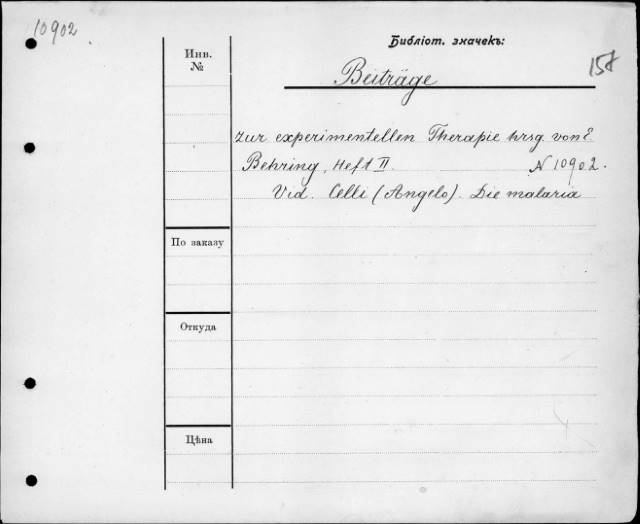 10902
Библіот. значекъ:
Инв.
№
Beiträge
158
zur experimentellen Therapie hrsg. von E.
Behring, Heft II. N 10902.
Vid. Celli (Angelo). Die malaria
По заказу
Откуда
Цѣна